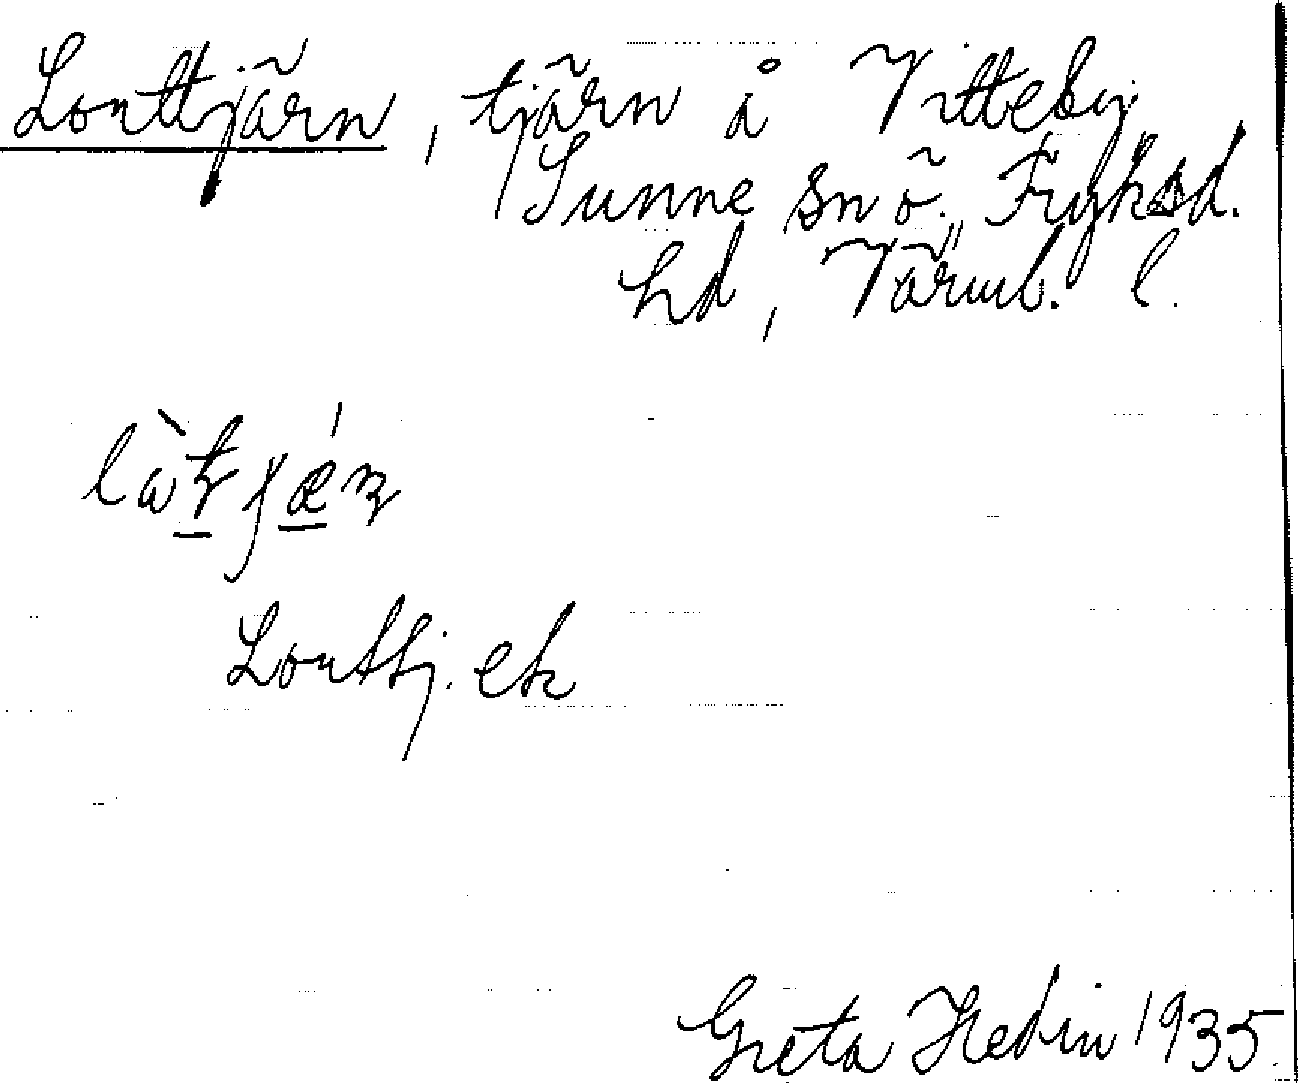 Lonttjärn, tjärn å Vitteby,
Sunne sn ö. Fryksd.
hd, Värml. l.
Lonttj. ek
Greta Hedin 1935